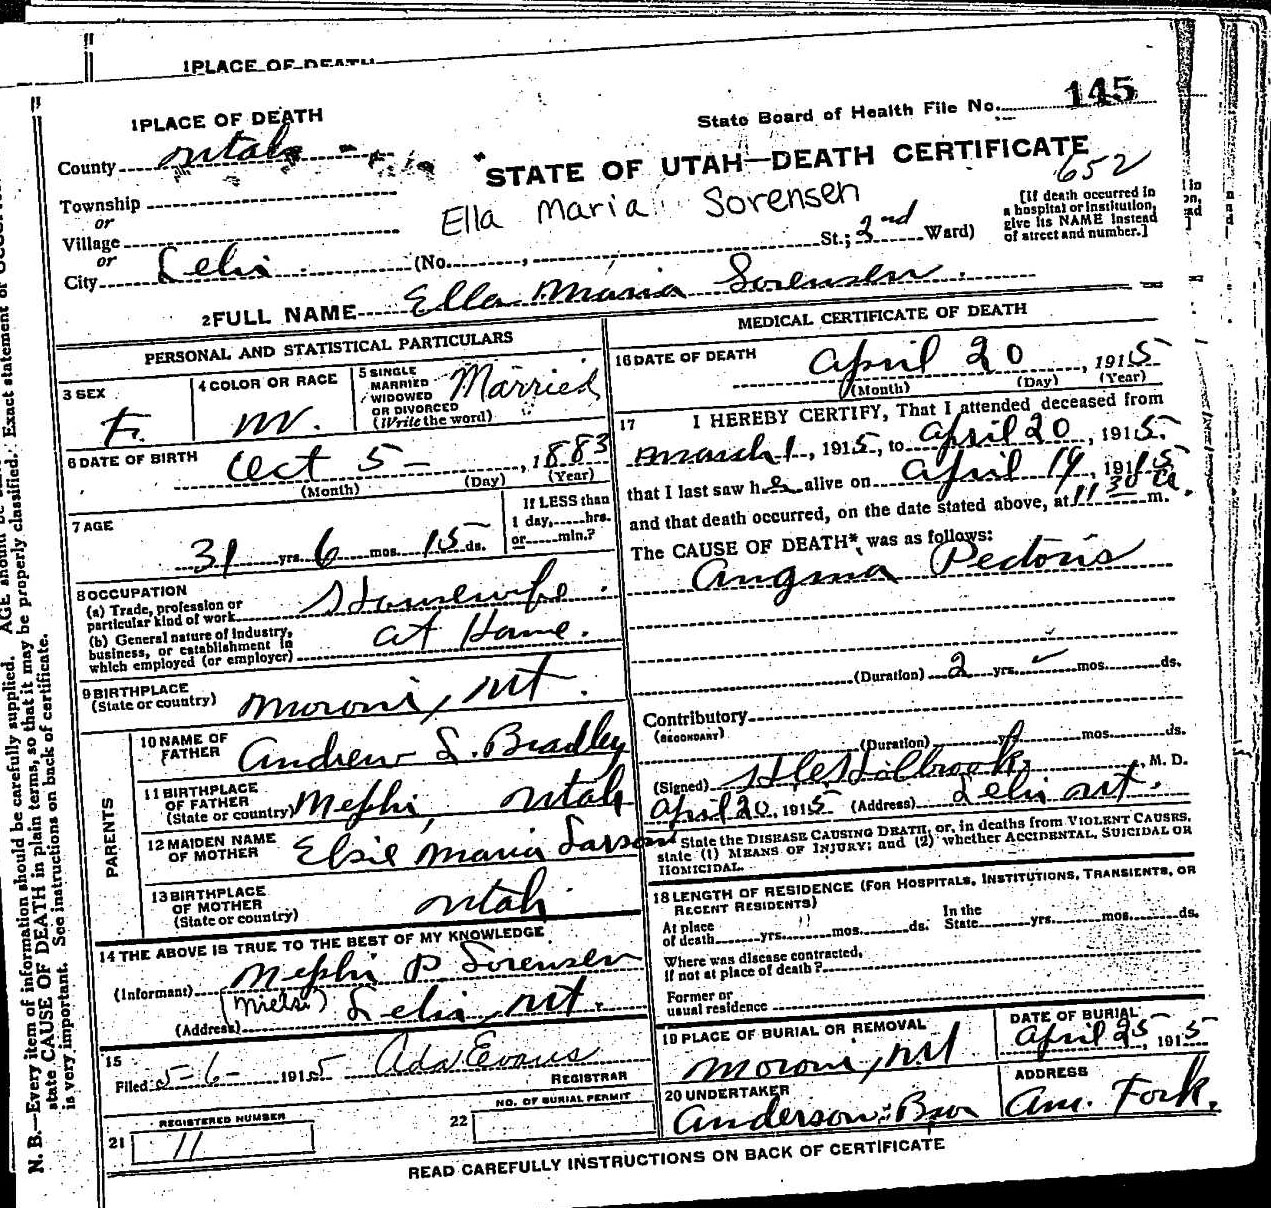 1 PLACE OF DEATH
1 PLACE OF DEATH
State Board of Health File No. 145
County Utah
STATE OF UTAH—DEATH CERTIFICATE
652
Township
or
Village
Ella Maria Sorensen
[If death occurred in
a hospital or institution,
give its NAME instead
of street and number.]
or
City Lehi (No. , St.; 2nd Ward)
2 FULL NAME Ella Maria Sorensen
PERSONAL AND STATISTICAL PARTICULARS
3 SEX F.
4 COLOR OR RACE W.
5 SINGLE
MARRIED
WIDOWED
OR DIVORCED
(Write the word)
Married
6 DATE OF BIRTH Oct 5 , 1883
(Month) (Day) (Year)
7 AGE
31 yrs. 6 mos. 15 ds.
If LESS than
1 day, hrs.
or min.?
8 OCCUPATION
(a) Trade, profession or
particular kind of work Housewife
(b) General nature of industry,
business, or establishment in
which employed (or employer) At Home.
9 BIRTHPLACE
(State or country) Moroni, Ut.
PARENTS
10 NAME OF
FATHER Andrew L. Bradley
11 BIRTHPLACE
OF FATHER
(State or country) Nephi, Utah
12 MAIDEN NAME
OF MOTHER Elsie Maria Larson
13 BIRTHPLACE
OF MOTHER
(State or country) Utah
14 THE ABOVE IS TRUE TO THE BEST OF MY KNOWLEDGE
(Informant) Nephi P Sorensen
(Niels)
(Address) Lehi, Ut.
15
Filed 5-6- 1915 Ada Evans
REGISTRAR
21 REGISTERED NUMBER
11
22 NO. OF BURIAL PERMIT
MEDICAL CERTIFICATE OF DEATH
16 DATE OF DEATH April 20, 1915
(Month) (Day) (Year)
17 I HEREBY CERTIFY, That I attended deceased from
March 1, 1915, to April 20, 1915.
that I last saw her alive on April 19, 1915
and that death occurred, on the date stated above, at 11 30 a. m.
The CAUSE OF DEATH*, was as follows:
Angina Pectoris
(Duration) 2 yrs. mos. ds.
Contributory
(SECONDARY)
(Duration) yrs. mos. ds.
(Signed) Holbrook, M. D.
April 20, 1915 (Address) Lehi Ut.
State the DISEASE CAUSING DEATH, or, in deaths from VIOLENT CAUSES,
state (1) MEANS OF INJURY; and (2) whether ACCIDENTAL, SUICIDAL OR
HOMICIDAL.
18 LENGTH OF RESIDENCE (FOR HOSPITALS, INSTITUTIONS, TRANSIENTS, OR
RECENT RESIDENTS)
At place
of death yrs. mos. ds.
In the
State yrs. mos. ds.
Where was disease contracted,
if not at place of death?
Former or
usual residence
19 PLACE OF BURIAL OR REMOVAL
Moroni, Ut
DATE OF BURIAL
April 25, 1915
20 UNDERTAKER
Anderson Bros
ADDRESS
Am. Fork.
READ CAREFULLY INSTRUCTIONS ON BACK OF CERTIFICATE
N. B.—Every item of information should be carefully supplied. AGE should be
state CAUSE OF DEATH in plain terms, so that it may be properly classified. Exact statement of
is very important. See instructions on back of certificate.